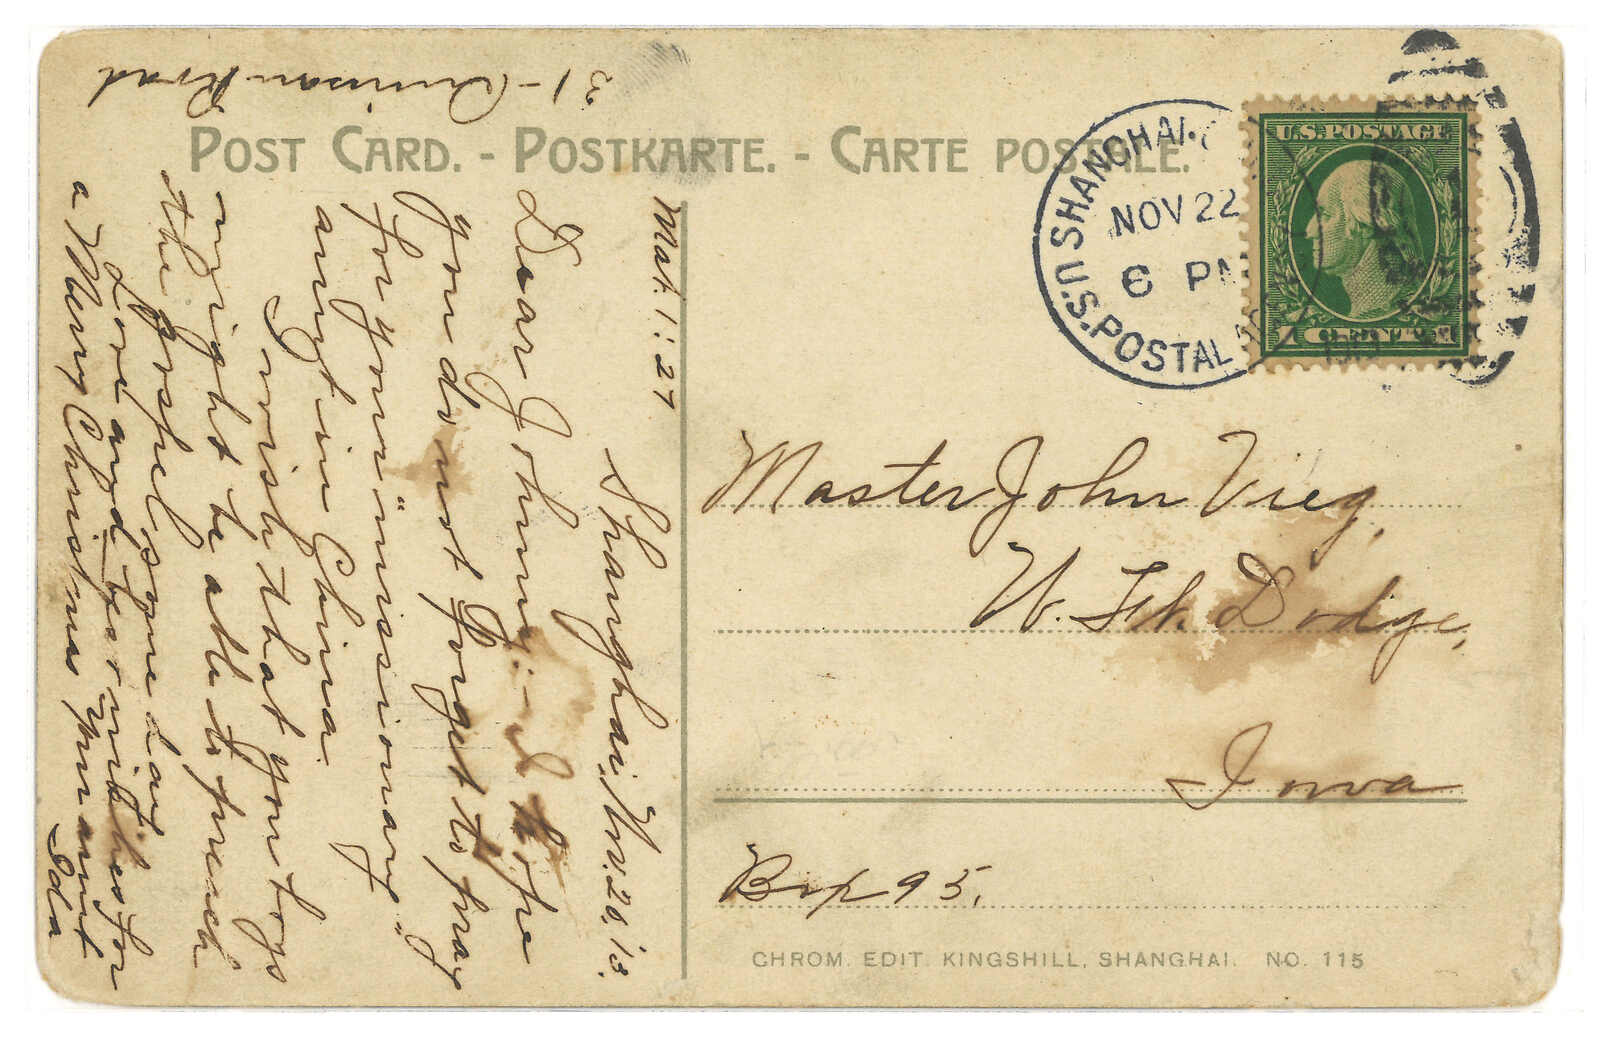 31 - Quinsan Road
POST CARD. - POSTKARTE. - CARTE POSTALE.
Mat. 1:27
Shanghai, Nov. 20, '13.
Dear Johnny:- I hope
you do not forget to pray
for your "missionary"
aunt in China.
I wish that you boys
might be able to preach
the gospel some day.
Love and best wishes for
a Merry Christmas Your aunt
Ida
U.S. POSTAL
SHANGHAI.
NOV 22
6 PM
U.S. POSTAGE
1 CENT 1
Master John Vieg,
W. Ft. Dodge,
Iowa
Box 95.
CHROM. EDIT. KINGSHILL, SHANGHAI. NO. 115